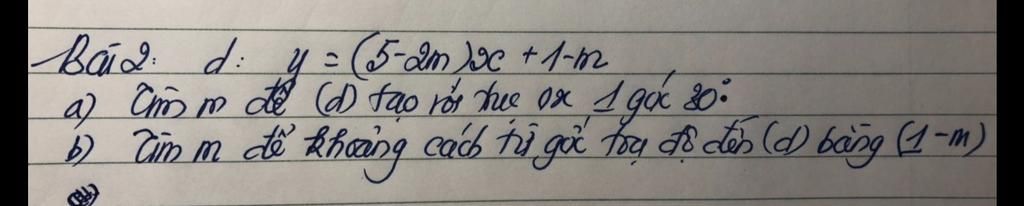 Bài 2: d: y = (5-2m)x + 1-m
a) Tìm m để (d) tạo với trục Ox 1 góc 30°
b) Tìm m để khoảng cách từ gốc tọa độ đến (d) bằng (1-m)